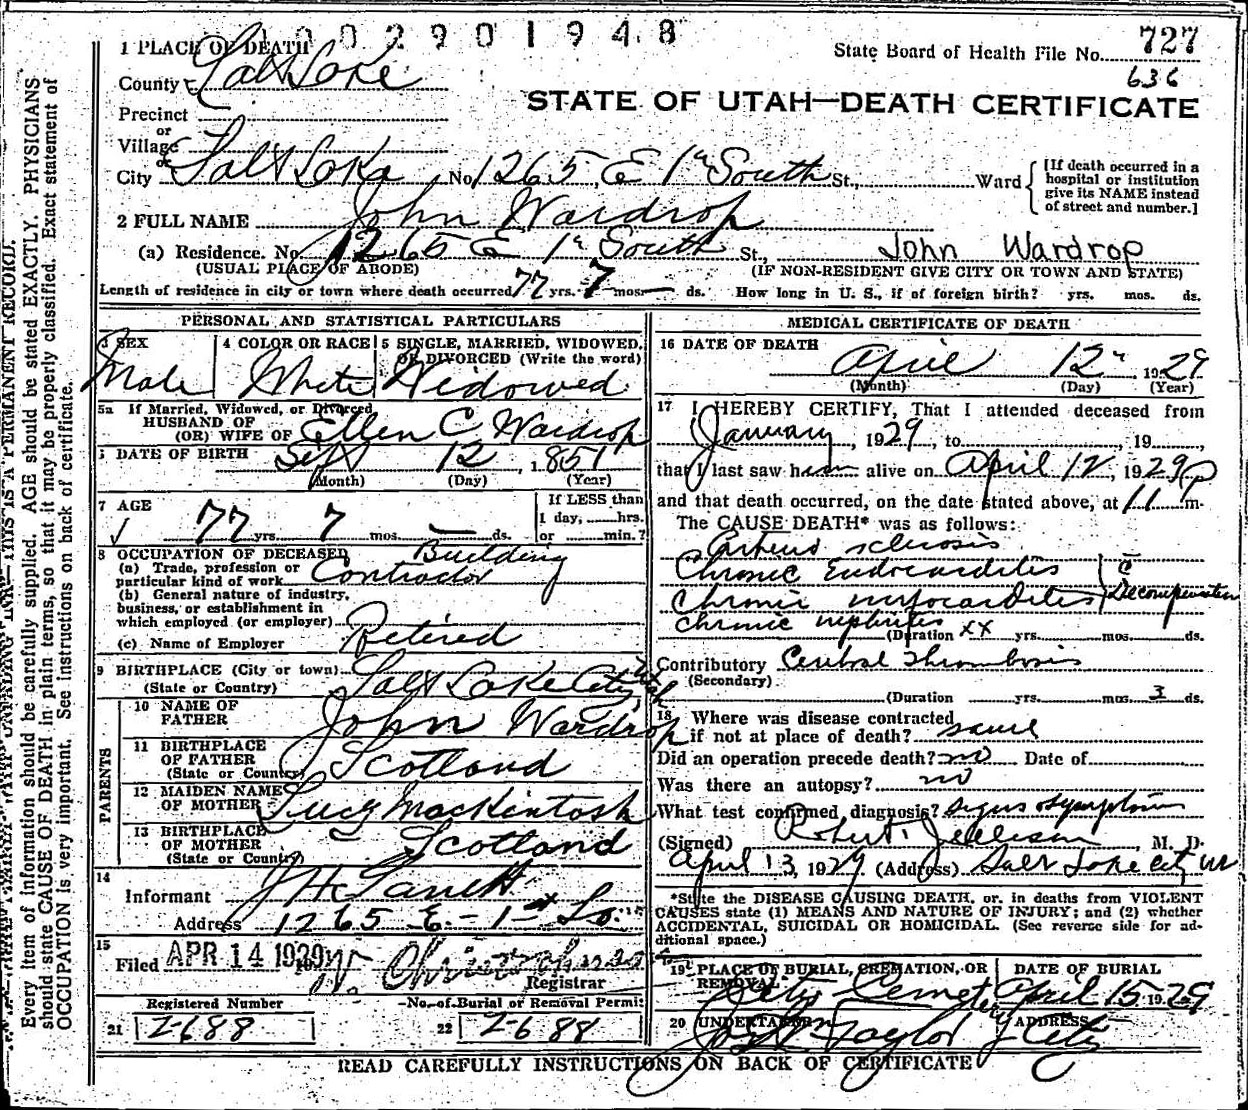 1002901948
1 PLACE OF DEATH
State Board of Health File No. 727
636
County Salt Lake
STATE OF UTAH—DEATH CERTIFICATE
Precinct
or
Village
or
City Salt Lake No. 1265 E 1st South St., Ward
[If death occurred in a hospital or institution give its NAME instead of street and number.]
2 FULL NAME John Wardrop
(a) Residence. No. 1265 E 1st South St., John Wardrop
(USUAL PLACE OF ABODE) (IF NON-RESIDENT GIVE CITY OR TOWN AND STATE)
Length of residence in city or town where death occurred 77 yrs. 7 mos. — ds. How long in U. S., if of foreign birth? yrs. mos. ds.
PERSONAL AND STATISTICAL PARTICULARS
3 SEX Male
4 COLOR OR RACE White
5 SINGLE, MARRIED, WIDOWED, OR DIVORCED (Write the word) Widowed
5a If Married, Widowed, or Divorced
HUSBAND OF
(OR) WIFE OF Ellen C. Wardrop
6 DATE OF BIRTH Sept 12, 1851
(Month) (Day) (Year)
7 AGE
77 yrs. 7 mos. — ds.
If LESS than
1 day, hrs.
or min.?
8 OCCUPATION OF DECEASED
(a) Trade, profession or
particular kind of work Building Contractor
(b) General nature of industry,
business, or establishment in
which employed (or employer)
(c) Name of Employer Retired
9 BIRTHPLACE (City or town) Salt Lake City Utah
(State or Country)
PARENTS
10 NAME OF
FATHER John Wardrop
11 BIRTHPLACE
OF FATHER
(State or Country) Scotland
12 MAIDEN NAME
OF MOTHER Lucy MacKintosh
13 BIRTHPLACE
OF MOTHER
(State or Country) Scotland
14
Informant
Address 1265 E. - 1st So.
15
Filed APR 14 1929
Registrar
Registered Number
21 2-688
No. of Burial or Removal Permit
22 2-688
MEDICAL CERTIFICATE OF DEATH
16 DATE OF DEATH
April 12" 1929
(Month) (Day) (Year)
17 I HEREBY CERTIFY, That I attended deceased from
January, 1929, to , 19 ,
that I last saw him alive on April 12, 1929
and that death occurred, on the date stated above, at 11 p m.
The CAUSE DEATH* was as follows:
Arterio sclerosis
Chronic Endocarditis
Chronic myocarditis c̄ Decompensation
Chronic nephritis
(Duration xx yrs. mos. ds.
Contributory Cerebral Thrombosis
(Secondary)
(Duration yrs. mos. 3 ds.
18 Where was disease contracted
if not at place of death? same
Did an operation precede death? no Date of
Was there an autopsy? no
What test confirmed diagnosis? signs & symptoms
(Signed) Robert Jellison, M. D.
April 13, 1929. (Address) Salt Lake City Ut
*State the DISEASE CAUSING DEATH, or, in deaths from VIOLENT
CAUSES state (1) MEANS AND NATURE OF INJURY; and (2) whether
ACCIDENTAL, SUICIDAL OR HOMICIDAL. (See reverse side for ad-
ditional space.)
19 PLACE OF BURIAL, CREMATION, OR
REMOVAL City Cemetery
DATE OF BURIAL
April 15 1929
20 UNDERTAKER Taylor
ADDRESS City
READ CAREFULLY INSTRUCTIONS ON BACK OF CERTIFICATE
THIS IS A PERMANENT RECORD.
Every item of information should be carefully supplied. AGE should be stated EXACTLY. PHYSICIANS
should state CAUSE OF DEATH in plain terms, so that it may be properly classified. Exact statement of
OCCUPATION is very important. See instructions on back of certificate.